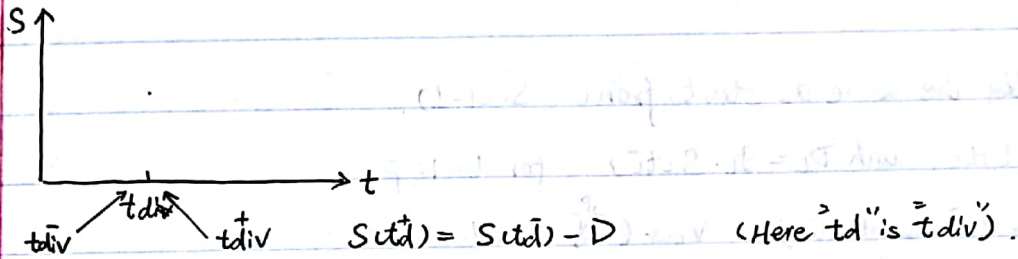 S
t
tdiv
t⁻div t⁺div S(t⁺d) = S(t⁻d) - D (Here "td" is "tdiv").